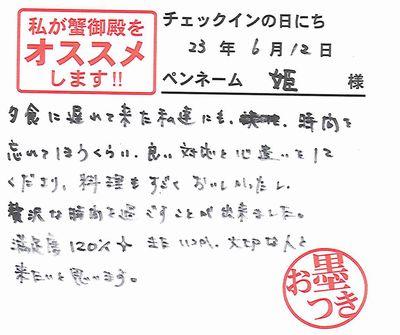 私が蟹御殿を
オススメ
します!!
チェックインの日にち
23年6月12日
ペンネーム 姫 様
夕食に遅れて来た私達にも、時間を
忘れてしまうくらい、良い対応と心遣いをして
くださり、料理もすごくおいしかったし、
贅沢な時間を過ごすことが出来ました。
満足度120% またいつか、大切な人と
来たいと思います。
お墨つき